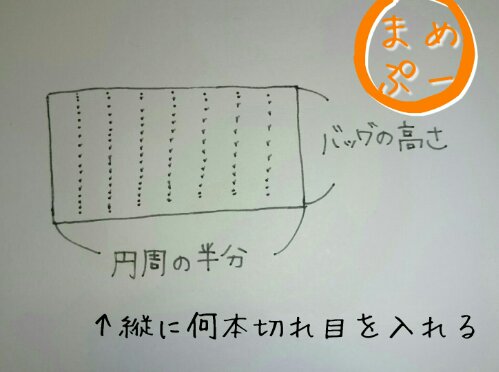 まめ
ぷー
バッグの高さ
円周の半分
↑縦に何本切れ目を入れる